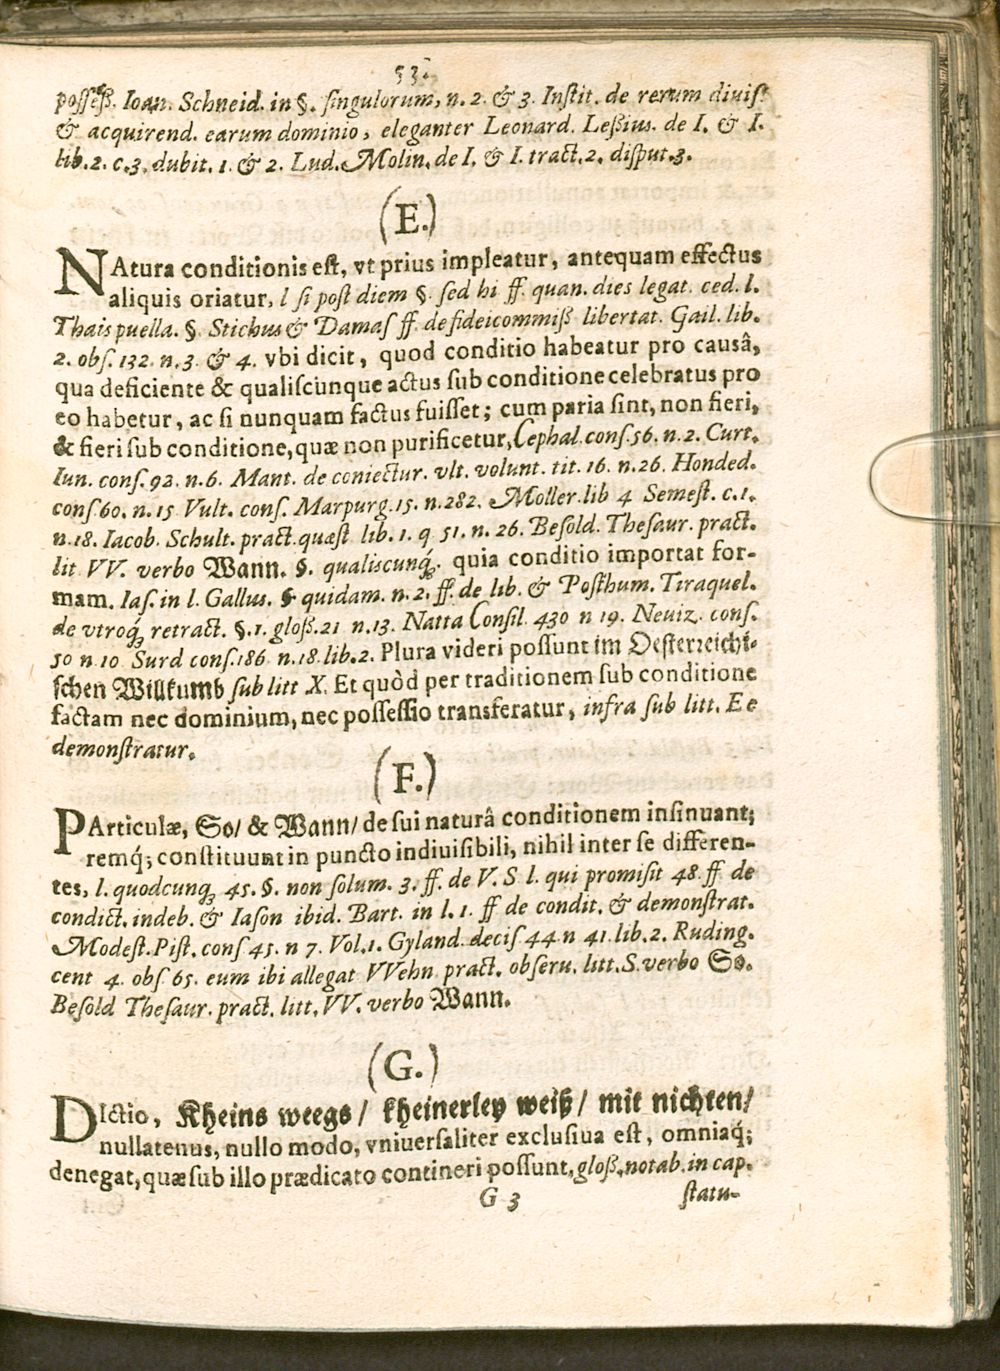 53.
possess. Ioan. Schneid. in §. singulorum, n. 2. & 3. Instit. de rerum diuis.
& acquirend. earum dominio, eleganter Leonard. Leßius. de I. & I.
lib. 2. c. 3. dubit. 1. & 2. Lud. Molin. de I. & I. tract. 2. disput. 3.
(E.)
NAtura conditionis est, vt prius impleatur, antequam effectus
aliquis oriatur, l si post diem §. sed hi ff. quan. dies legat. ced. l.
Thais puella. §. Stichus & Damas ff. de fideicommiß libertat. Gail. lib.
2. obs. 132. n. 3. & 4. vbi dicit, quod conditio habeatur pro causâ,
qua deficiente & qualiscunque actus sub conditione celebratus pro
eo habetur, ac si nunquam factus fuisset; cum paria sint, non fieri,
& fieri sub conditione, quæ non purificetur, Cephal. cons. 56. n. 2. Curt.
Iun. cons. 92. n. 6. Mant. de coniectur. vlt. volunt. tit. 16. n. 26. Honded.
cons 60. n. 15 Vult. cons. Marpurg. 15. n. 282. Moller. lib 4 Semest. c. 1.
n. 18. Iacob. Schult. pract. quæst lib. 1. q 51. n. 26. Besold. Thesaur. pract.
lit VV. verbo Wann. §. qualiscunq́; quia conditio importat for-
mam. Ias. in l. Gallus. § quidam. n. 2. ff. de lib. & Posthum. Tiraquel.
de vtroq́; retract. §. 1. gloß. 21 n. 13. Natta Consil 430 n 19. Neuiz. cons.
50 n 10 Surd cons. 186 n. 18. lib. 2. Plura videri possunt im Oesterreichi-
schen Willkumb sub litt X. Et quòd per traditionem sub conditione
factam nec dominium, nec possessio transferatur, infra sub litt. Ee
demonstratur.
(F.)
PArticulæ, So/ & Wann/ de sui naturâ conditionem insinuant;
remq́; constituunt in puncto indiuisibili, nihil inter se differen-
tes, l. quodcunq́; 45. §. non solum. 3. ff. de V. S l. qui promisit 48. ff de
condict. indeb. & Iason ibid. Bart. in l. 1. ff de condit. & demonstrat.
Modest. Pist. cons 45. n 7. Vol. 1. Gyland. decis 44 n 41 lib. 2. Ruding.
cent 4. obs 65. eum ibi allegat VVehn pract. obseru. litt. S. verbo So.
Besold Thesaur. pract. litt. VV. verbo Wann.
(G.)
DIctio, Kheins weegs/ kheinerley weiß/ mit nichten/
nullatenus, nullo modo, vniuersaliter exclusiua est, omniaq́;
denegat, quæ sub illo prædicato contineri possunt, gloß. notab. in cap.
G 3 statu-